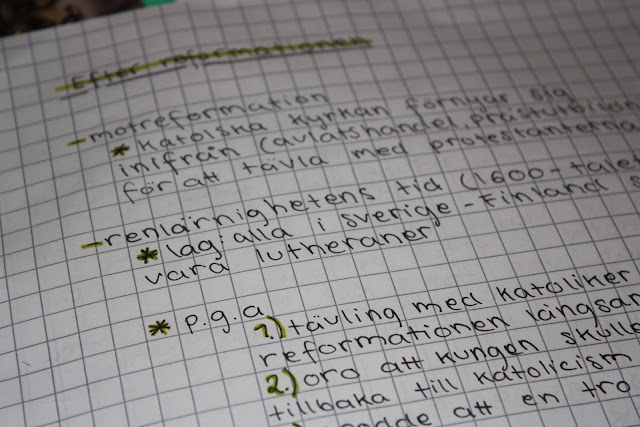 Efter reformationen
- motreformation
* katolska kyrkan förnyar sig
inifrån (avlatshandel, prästutbildn
för att tävla med protestanterna
- renlärnighetens tid (1600-tale
* lag: alla i sverige-Finland s
vara lutheraner
* p.g.a
1.) tävling med katoliker
reformationen långsam
2.) oro att kungen skulle
tillbaka till katolicism
att en tro